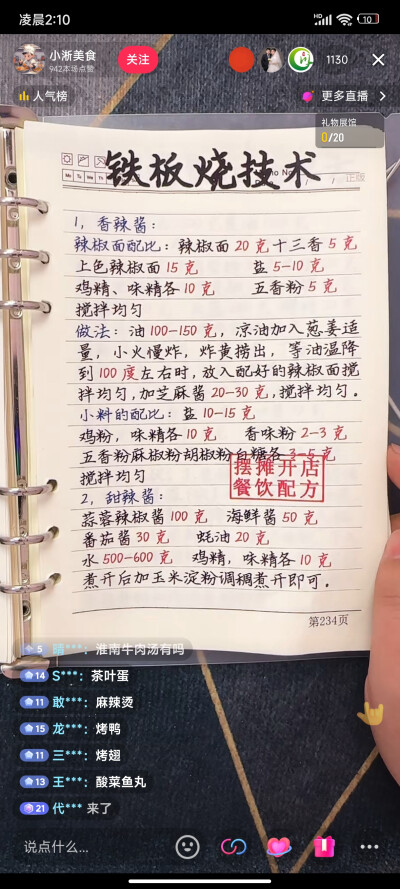 凌晨2:10
HD
10
小淅美食
942本场点赞
关注
1130
人气榜
更多直播
礼物展馆
0/20
铁板烧技术
1，香辣酱：
辣椒面配比：辣椒面 20 克 十三香 5 克
上色辣椒面 15 克 盐 5-10 克
鸡精、味精各 10 克 五香粉 5 克
搅拌均匀
做法：油 100-150 克，凉油加入葱姜适
量，小火慢炸，炸黄捞出，等油温降
到 100 度左右时，放入配好的辣椒面搅
拌均匀，加芝麻酱 20-30 克，搅拌均匀。
小料的配比：盐 10-15 克
鸡粉，味精各 10 克 香味粉 2-3 克
五香粉麻椒粉胡椒粉白糖各 3-5 克
搅拌均匀
摆摊开店
餐饮配方
2，甜辣酱：
蒜蓉辣椒酱 100 克 海鲜酱 50 克
番茄酱 30 克 蚝油 20 克
水 500-600 克 鸡精，味精各 10 克
煮开后加玉米淀粉调稠煮开即可。
第234页
5 ***：淮南牛肉汤有吗
14 S***：茶叶蛋
11 敢***：麻辣烫
15 龙***：烤鸭
11 三***：烤翅
13 王***：酸菜鱼丸
21 代*** 来了
说点什么...